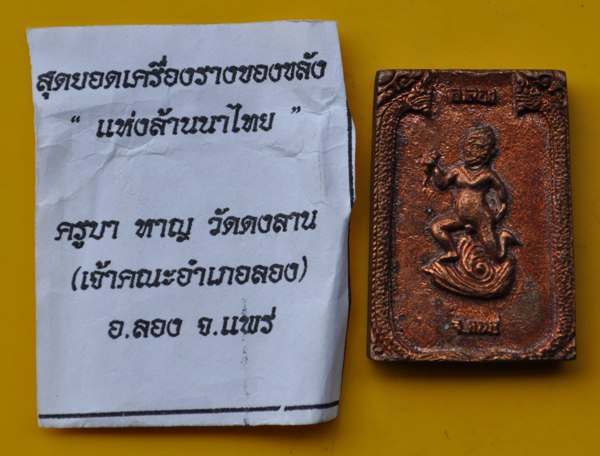 สุดยอดเครื่องรางของขลัง
“ แห่งล้านนาไทย ”
ครูบา หาญ วัดดงลาน
(เจ้าคณะอำเภอลอง)
อ.ลอง จ.แพร่
อ.ลอง
จ.แพร่